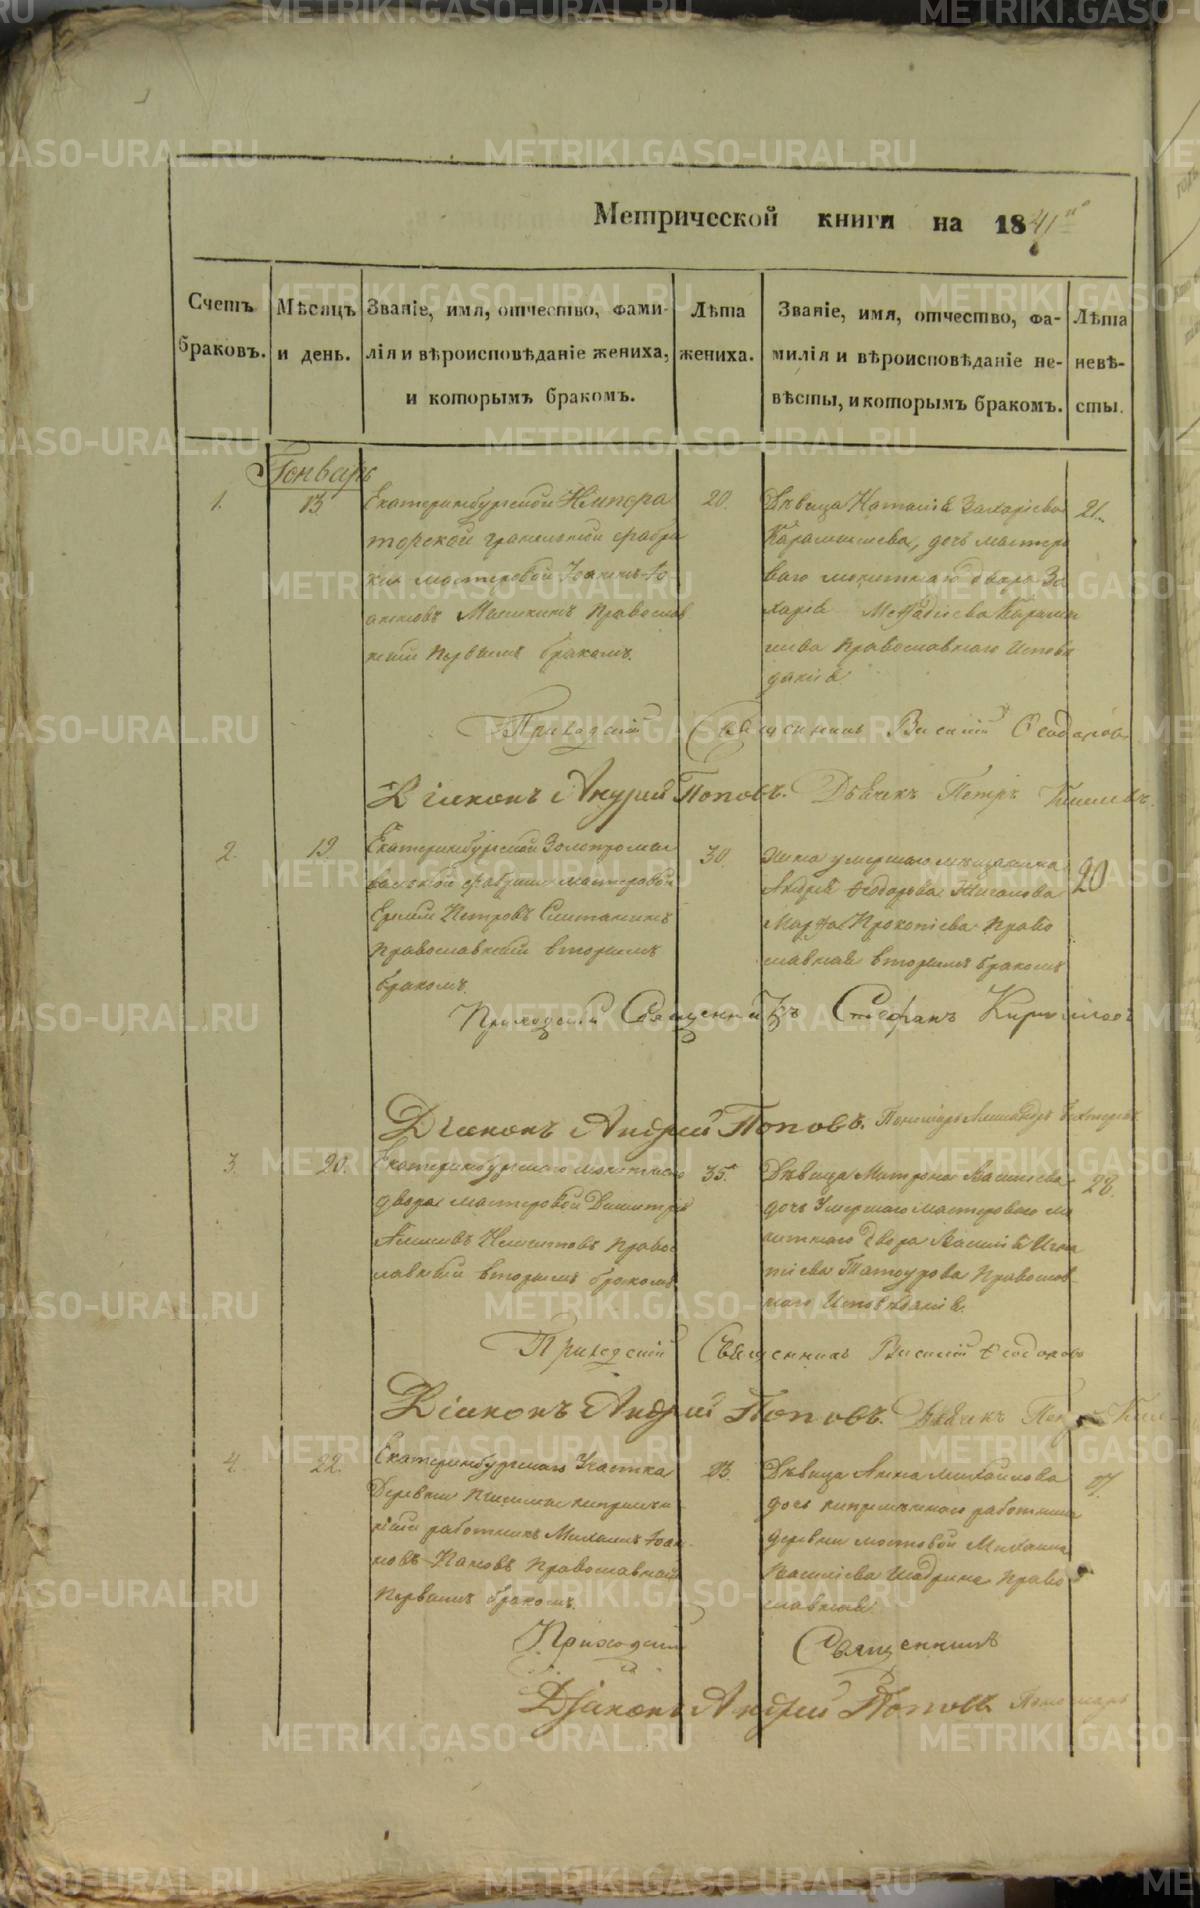 Метрической книги на 1841
Счетъ браковъ.
Мѣсяцъ и день.
Званіе, имя, отчество, фами-
лія и вѣроисповѣданіе жениха,
и которымъ бракомъ.
Лѣта жениха.
Званіе, имя, отчество, фа-
милія и вѣроисповѣданіе не-
вѣсты, и которымъ бракомъ.
Лѣта невѣ-
сты.
Генварь
1.
13.
Екатеринбургской Импера
торской гранильной фабри
ки мастеровой Іоаннъ Іо-
анновъ православ
ный первымъ бракомъ.
20.
Дѣвица Наталія Захаріева
дочь мастеро
ваго монетнаго двора За
харія Меѳодіева
православнаго исповѣ
данія
21.
Приходскій Священникъ Василій Ѳеодоровъ
Діаконъ Андрей Поповъ. Дьячекъ Петръ
2.
19.
Екатеринбургской Золотопромы
вальной фабрики мастеровой
Петровъ
православный вторымъ
бракомъ.
30.
Жена умершаго мѣщанина
Андрея Ѳеодорова
Марѳа Прокопіева право
славная вторымъ бракомъ
20
Приходскій Священникъ Стефанъ Кирилловъ
Діаконъ Андрей Поповъ. Пономарь Александръ
3.
20.
Екатеринбургскаго монетнаго
двора мастеровой Димитрій
правос
лавный вторымъ бракомъ
35.
Дѣвица Матрона Васильева
дочь умершаго мастероваго мо
нетнаго двора Василія Игна
тіева православ
наго исповѣданія.
28.
Приходскій Священникъ Василій Ѳеодоровъ
Діаконъ Андрей Поповъ. Дьячекъ
4.
22.
Екатеринбургскаго Участка
Деревни непремѣн
ный работникъ Михаилъ Іоан-
новъ Пановъ православный
первымъ бракомъ.
23.
Дѣвица Анна Михайлова
дочь непремѣннаго работника
деревни Мостовой Михаила
Василіева Шадрина право
славная
Приходскій Священникъ
Діаконъ Андрей Поповъ. Пономарь
METRIKI.GASO-URAL.RU